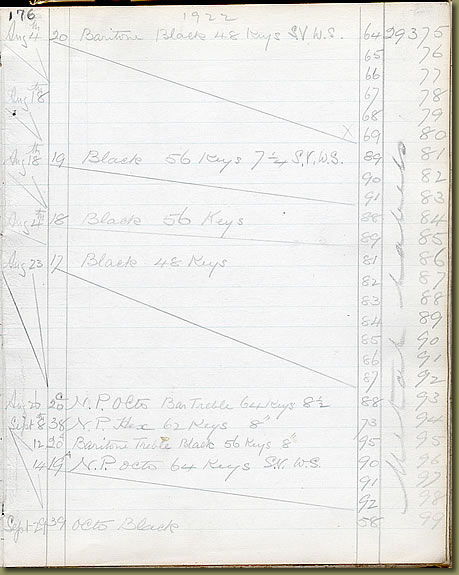 176 1922
Aug 4th 20 Baritone Black 48 Keys S.V.W.S. 64 29375
65 76
66 77
Aug 18th 67 78
68 79
X 69 80
Aug 18th 19 Black 56 Keys 7 1/4 S.V.W.S. 89 81
90 82
91 83
Aug 4th 18 Black 56 Keys 88 84
89 85
Aug 23 17 Black 48 Keys 81 86
82 87
83 88
84 89
85 90
86 91
87 92
Aug 20 20a N.P. Octo Bar Treble 64 Keys 8 1/2 88 93
Sept 8th 38 N.P. Hex 62 Keys 8" 73 94
12 20a Baritone Treble Black 56 Keys 8" 95 95
14 19a N.P. Octo 64 Keys S.V. W.S. 90 96
91 97
92 98
Sept 29 39 Octo Black 58 99